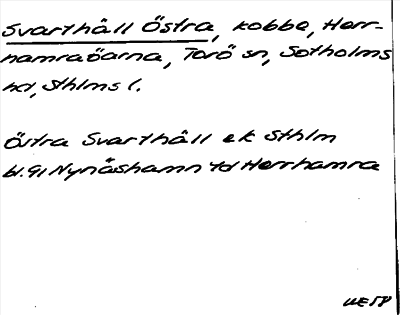 Svarthåll Östra, kobbe, Herr-
hamraöarna, Torö sn, Sotholms
hd, Sthlms l.
Östra Svarthåll ek Sthlm
bl. 91 Nynäshamn td Herrhamra
WE 58